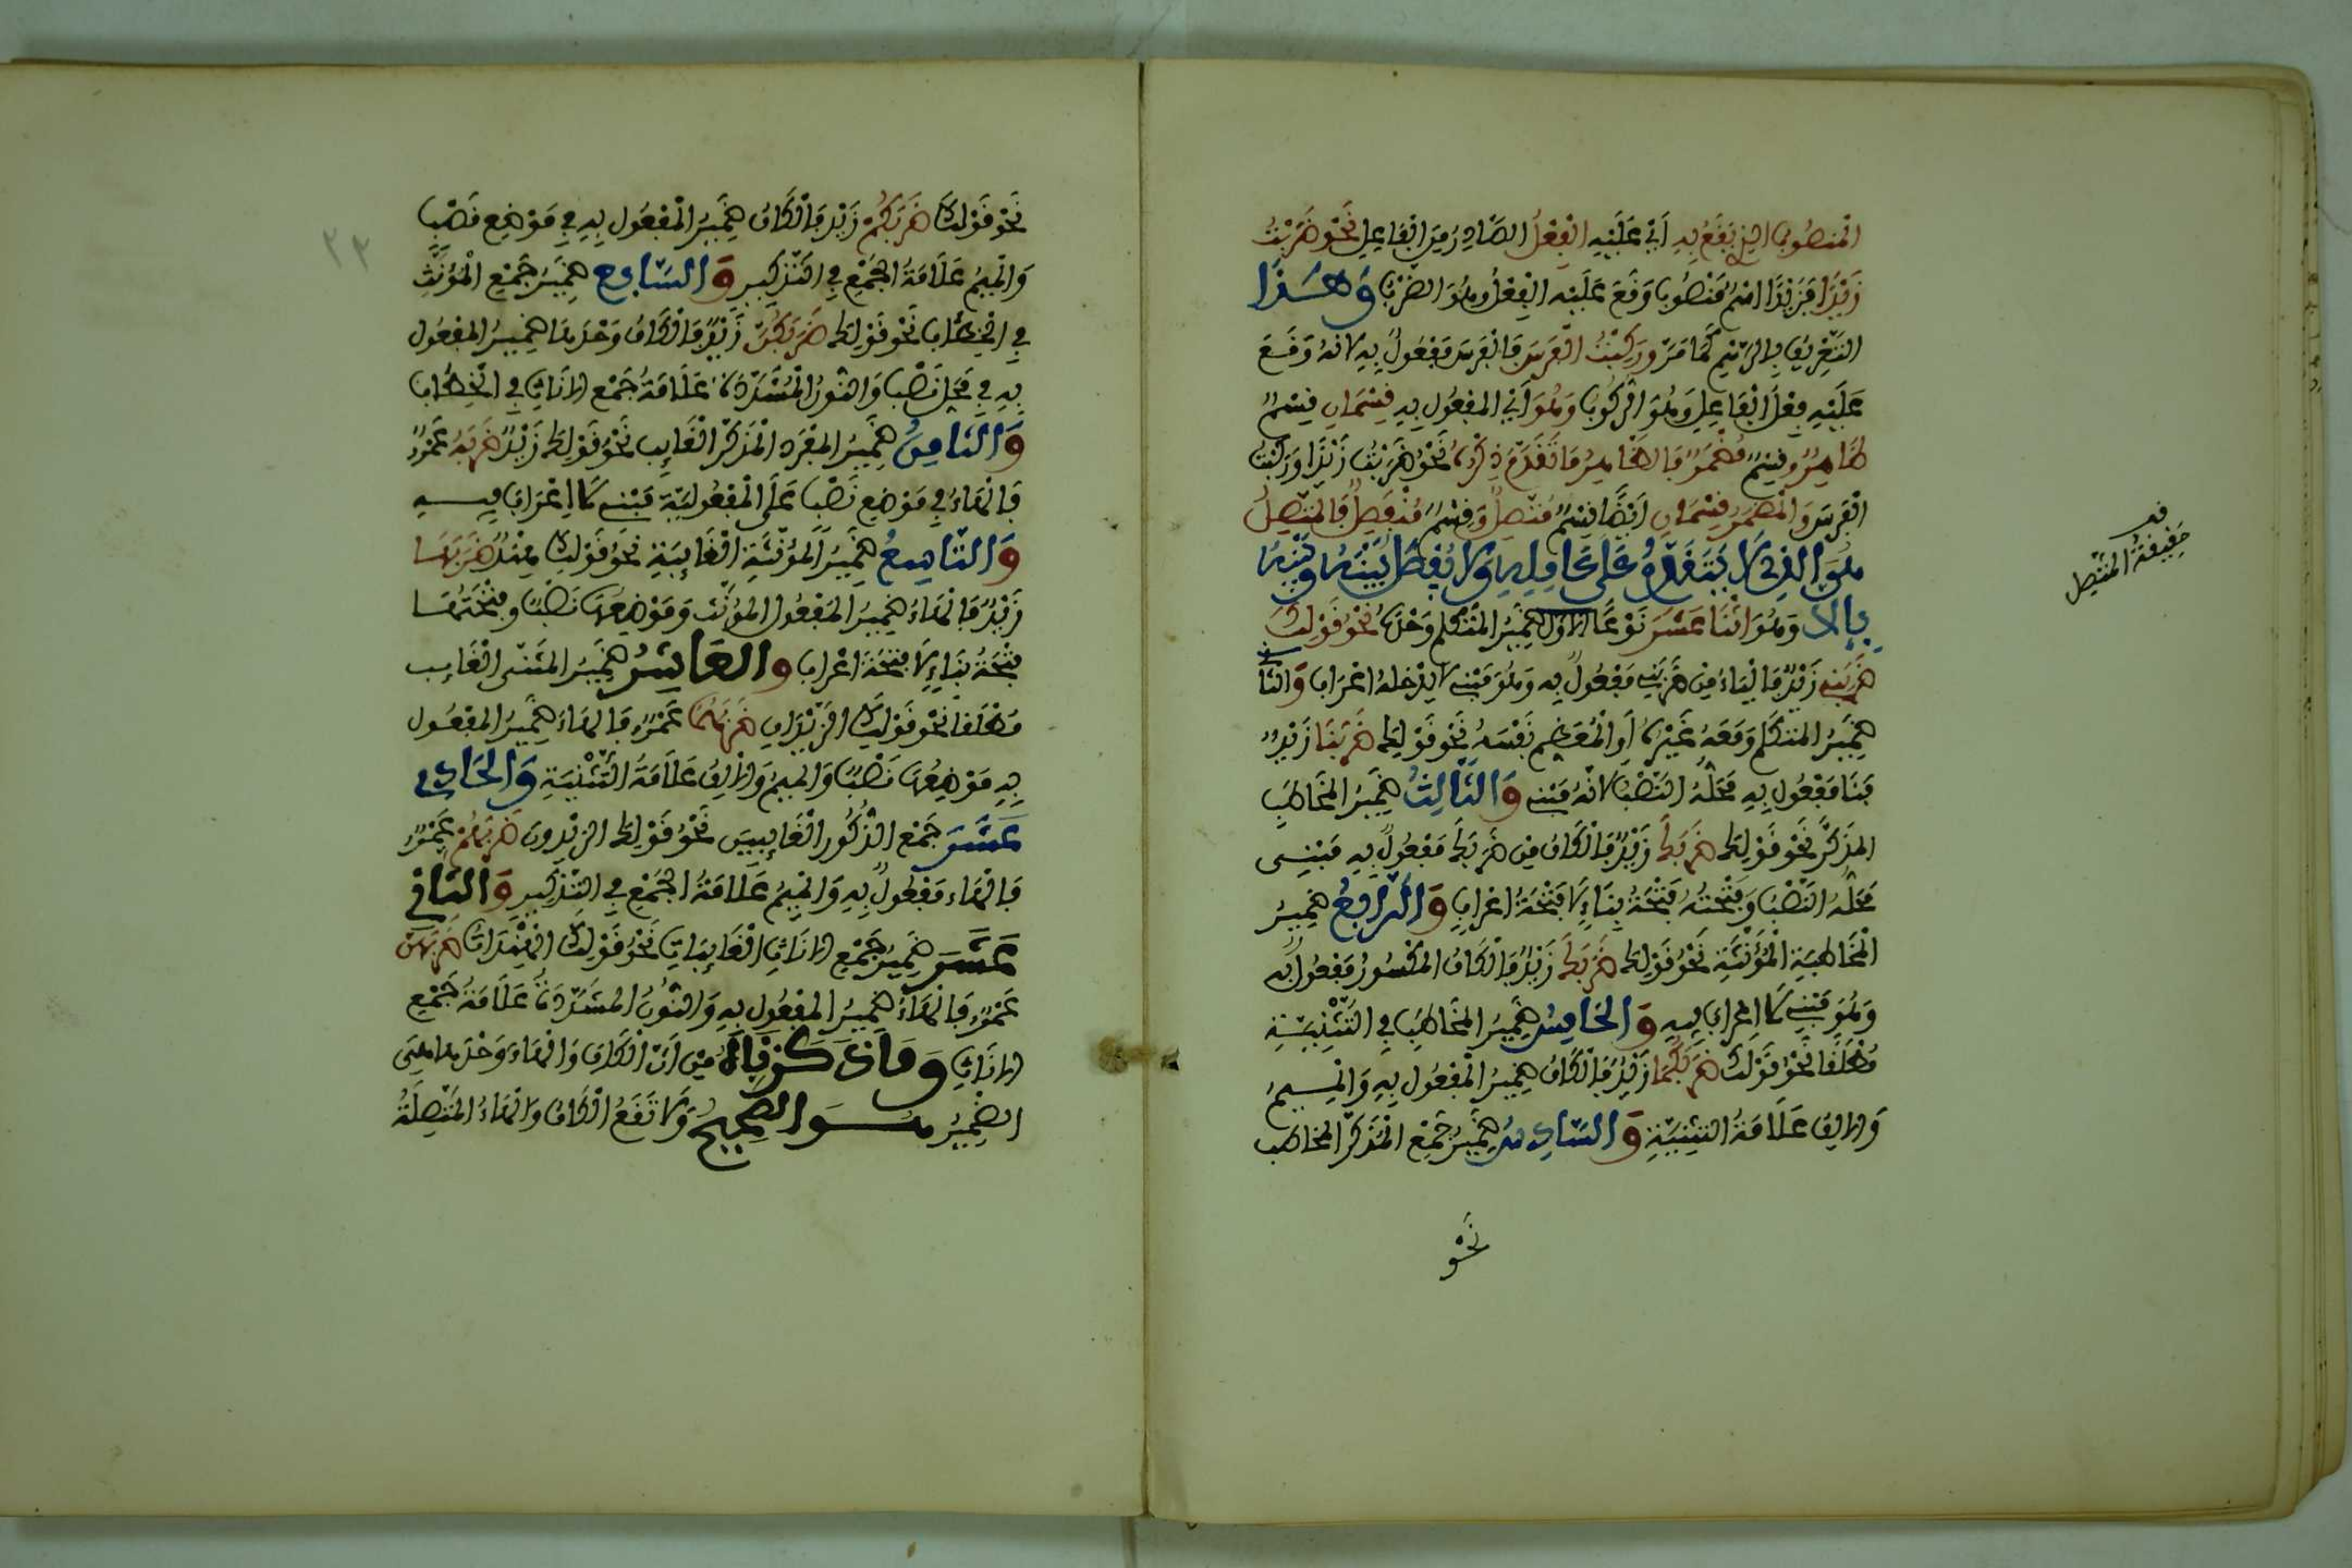 المنصُوبُ الذِي يَقَعُ بِهِ أَيْ عَلَيْهِ الْفِعْلُ الصَّادِرُ مِنَ الْفَاعِلِ نَحْوُ ضَرَبْتُ
زَيْدًا فَزَيْدًا اسْمٌ مَنْصُوبٌ وَقَعَ عَلَيْهِ الْفِعْلُ وَهُوَ الضَّرْبُ وَهَذَا
التَّعْرِيفُ بِالرَّسْمِ كَمَا مَرَّ وَرَكِبْتُ الْفَرَسَ فَالْفَرَسَ مَفْعُولٌ بِهِ لِأنهُ وَقَعَ
عَلَيْهِ فِعْلُ الْفَاعِلِ وَهُوَ الرُّكُوبُ وَهُوَ أَيْ المفْعُولِ بِهِ قِسْمَانِ قِسْمٌ
ظَاهِرٌ وقِسْمٌ مُضْمَرٌ فَالظَّاهِرُ مَا تَقَدَّمَ ذِكْرُهُ نَحْوُ ضَرَبْتُ زَيْدًا وَرَكِبْتُ
الْفَرَسَ وَالْمُضْمَرُ قِسْمَانِ أَيْضًا قِسْمٌ مُتَّصِلٌ وَقِسْمٌ مُنْفَصِلٌ فَالْمُتَّصِلُ
هُوَ الذِي لَا يَتَقَدَّمُ عَلَى عَامِلِهِ وَلَا يُفْصَلُ بَيْنَهُ وَبَيْنَهُ
بِإلَّا وَهُوَ اثْنَا عَشَرَ نَوْعًا الأوَّلُ ضَمِيرُ المُتَكَلِّمِ وَحْدَهُ نَحْوُ قَوْلِكَ
ضَرَبَنِي زَيْدٌ فَالْيَاءُ مِنْ ضَرَبَنِي مَفْعُولٌ بِهِ وَهُوَ مَبْنِي لَا يَدْخُلهُ اعْرَابٌ وَالثَّانِي
ضَمِيرُ المتَكَلِّمِ وَمَعَهُ غَيْرُهُ أَوِ الْمُعَظِّمِ نَفْسَهُ نَحْوُ قَوْلِكَ ضَرَبَنَا زَيْدٌ
فَنَا مَفْعُولٌ بِهِ مَحَلُّهُ النَّصْبُ لأنَّهُ مَبْنِي وَالثَّالِثُ ضَمِيرُ المُخَاطَبِ
المذَكَّرِ نَحْوُ قَوْلِكَ ضَرَبَكَ زَيْدٌ فَالْكَافُ مِنْ ضَرَبَكَ مَفْعُولٌ بِهِ مَبْنِي
مَحَلُّهُ النَّصْبُ وَفَتْحَتُهُ فَتْحَةُ بِنَاءٍ لَا فَتْحَةُ اعْرَابٍ وَالرَّابِعُ ضَمِيرُ
الْمُخَاطَبَةِ الْمُؤَنَّثَةِ نَحْوُ قَوْلِكَ ضَرَبَكِ زَيْدٌ فَالْكَافُ المَكْسُورُ مَفْعُولٌ بِهِ
وَهُوَ مَبْنِي لَا اعْرَابَ فِيهِ وَالخَامِسُ ضَمِيرُ المُخَاطَبِ فِي التَّثْنِيَةِ
مُطْلَقًا نَحْوُ قَوْلِكَ ضَرَبَكُمَا زَيْدٌ فَالْكَافُ ضَمِيرُ الْمَفْعُولِ بِهِ وَالْمِيمُ
وَالْألِفُ عَلَامَةُ التَّثْنِيَةِ وَالسَّادِسُ ضَمِيرُ جَمْعِ الْمُذَكَّرِ المخَاطَبِ
نَحْوُ
قف
حَقِيقَةُ الْمُتَّصِلِ
٣٣
نَحْوُ قَوْلِكَ ضَرَبَكُمْ زَيْدٌ فَالْكَافُ ضَمِيرُ الْمَفْعُولِ بِهِ فِي مَوْضِعِ نَصْبٍ
وَالْمِيمُ عَلَامَةُ الجَمْعِ فِي التَّذْكِيرِ وَالسَّابِعُ ضَمِيرُ جَمْعِ الْمُؤَنَّثِ
فِي الْخِطَابِ نَحْوُ قَوْلِكَ ضَرَبَكُنَّ زَيْدٌ فَالْكَافُ وَحْدَهَا ضَمِيرُ المفْعُولِ
بِهِ فِي مَحَلِّ نَصْبٍ وَالنُّونُ الْمُشَدَّدَةُ عَلَامَةُ جَمْعِ الإِنَاثِ فِي الْخِطَابِ
وَالثَّامِنُ ضَمِيرُ المفْرَدِ الْمُذَكَّرِ الْغَائِبِ نَحْوُ قَوْلِكَ زَيْدٌ ضَرَبَهُ عَمْرٌو
فَالْهَاءُ فِي مَوْضِعِ نَصْبٍ عَلَى الْمَفْعُولِيَّةِ مَبْنِي لَا اعْرَابَ فِيهِ
وَالتَّاسِعُ ضَمِيرُ الْمُؤَنَّثَةِ الْغَائِبَةِ نَحْوُ قَوْلِكَ هِنْدٌ ضَرَبَهَا
زَيْدٌ فَالْهَاءُ ضَمِيرُ المَفْعُولِ المؤنَّث وَمَوْضِعُهَا نَصْبٌ وفَتْحَتُهَا
فَتْحَةُ بِنَاءٍ لَا فَتْحَةُ اعْرَابٍ وَالعَاشِرُ ضَمِيرُ المثَنَّى الْغَائِب
مُطْلَقًا نَحْوُ قَوْلِكَ الزَّيْدَانِ ضَرَبَهُمَا عَمْرٌو فَالهَاءُ ضَمِيرُ المفْعُول
بِهِ مَوْضِعُهَا نَصْبٌ وَالمِيمُ وَالألِفُ عَلَامَةُ التَّثْنِيَةِ وَالحَادِي
عَشَرَ جَمْعِ الذُّكُورِ الْغَائِبِينَ نَحْوُ قَوْلِكَ الزيْدُونَ ضَرَبَهُمْ عَمْرٌو
فَالْهَاءُ مَفْعُولٌ بِهِ وَالْمِيمُ عَلَامَةُ الجَمْعِ فِي التَّذْكِيرِ وَالثَّانِي
عَشَرَ ضَمِيرُ جَمْعِ الإِنَاثِ الْغَائِبَاتِ نَحْوُ قَوْلِكَ الْهِنْدَاتُ ضَرَبَهُنَّ
عَمْرٌو فَالْهَاءُ ضَمِيرُ المفْعُولِ بِهِ وَالنُّونُ المشَدَّدَةُ عَلَامَةُ جَمْعِ
الإنَاثِ وَمَا ذَكَرْنَاهُ مِنْ أَنَّ الْكَافَ وَالْهَاءَ وَحْدَهَا هِيَ
الضَّمِيرُ هُوَ الصَّحِيحُ وَلَا تَقَعُ الْكَافُ وَالْهَاءُ المُتَّصِلَةُ